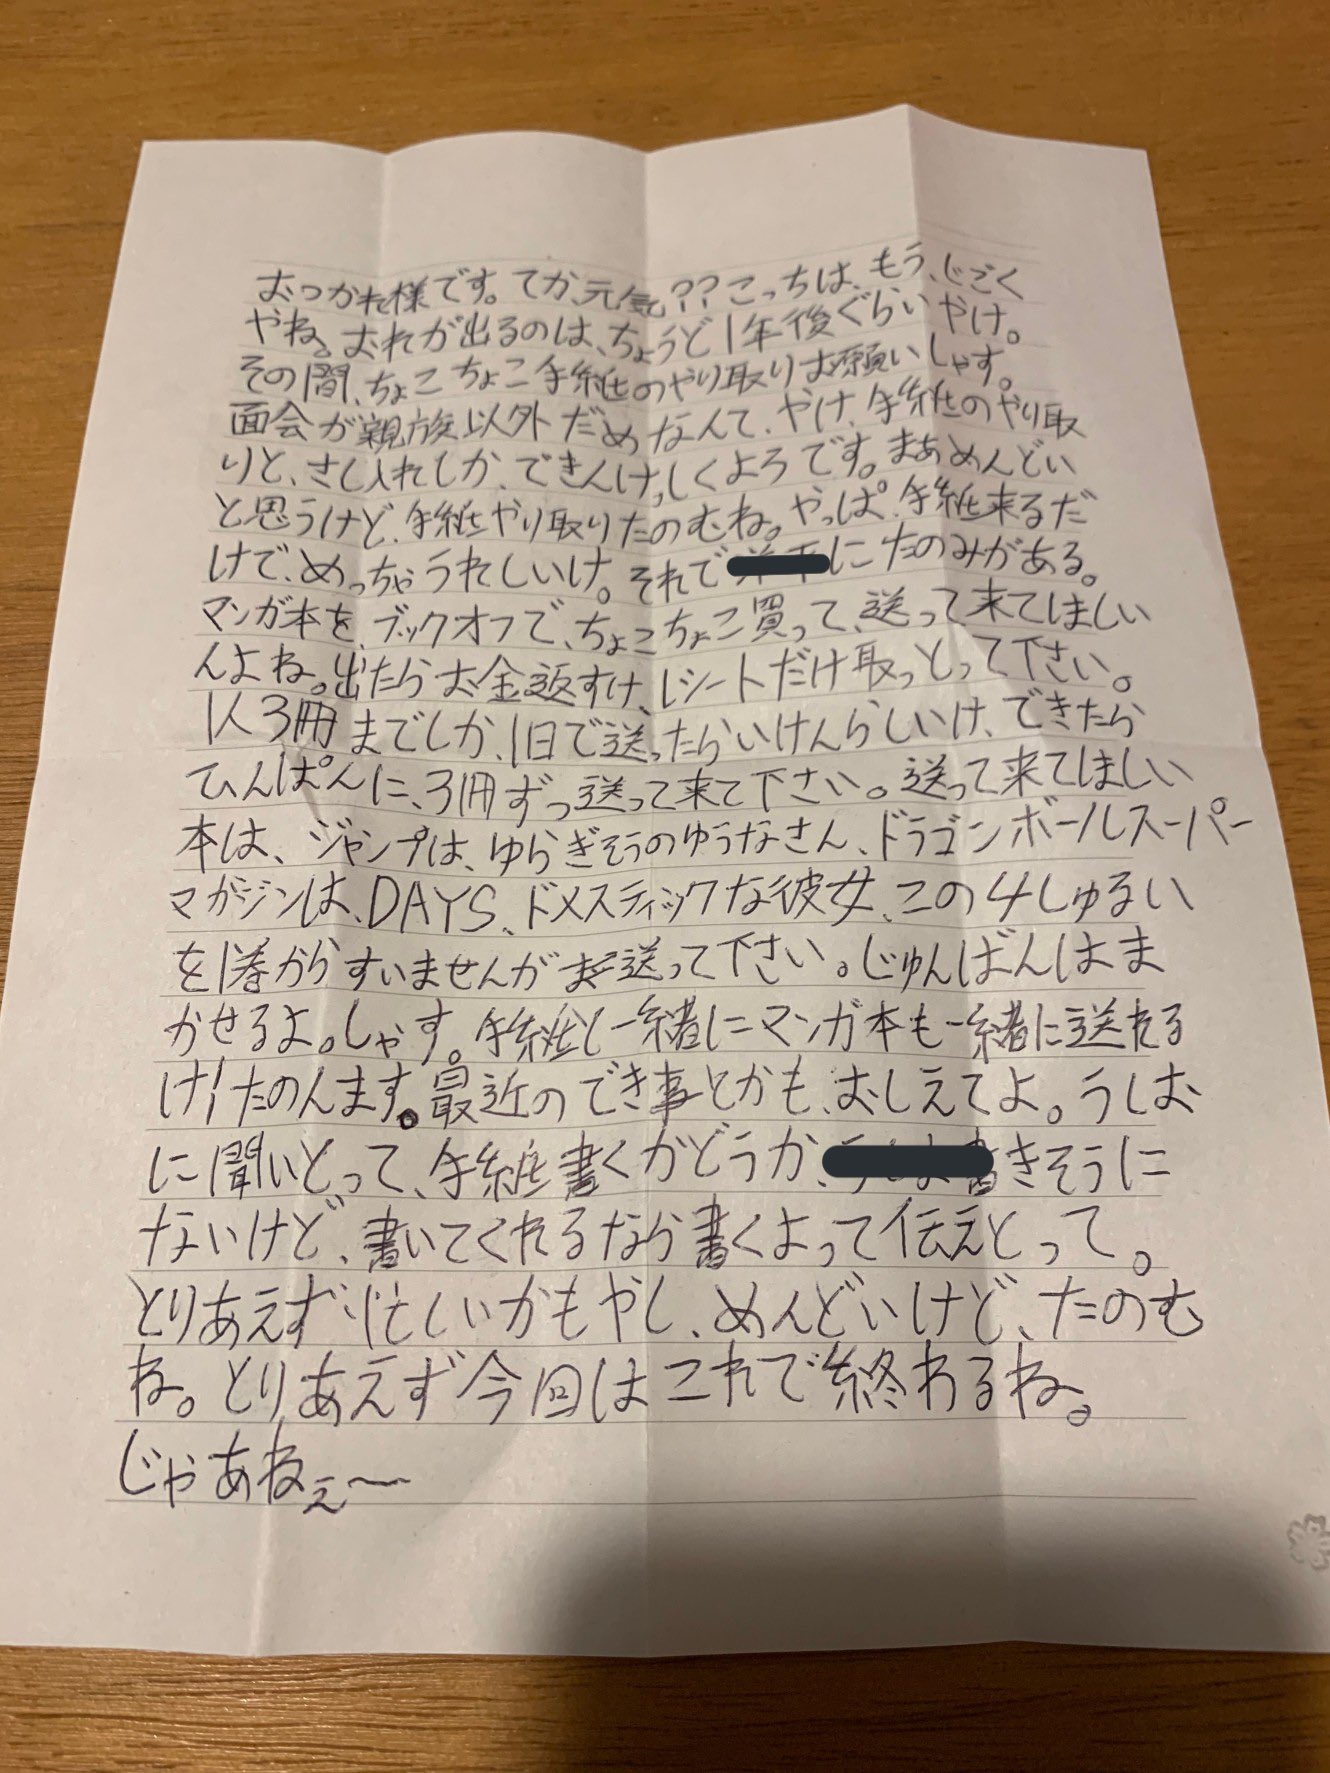 おつかれ様です。てか、元気??こっちは、もう、じごく
やね。おれが出るのは、ちょうど1年後ぐらいやけ。
その間、ちょこちょこ手紙のやり取りお願いしゃす。
面会が親族以外だめなんて、やけ、手紙のやり取
りと、さし入れしか、できんけっしくよろです。まあめんどい
と思うけど、手紙やり取りたのむね。やっぱ、手紙来るだ
けで、めっちゃうれしいけ。それで にたのみがある。
マンガ本を、ブックオフで、ちょこちょこ買って、送って来てほしい
んよね。出たらお金返すけ、レシートだけ取っとって下さい。
1人3冊までしか、1日で送ったらいけんらしいけ、できたら
ひんぱんに、3冊ずつ送って来て下さい。送って来てほしい
本は、ジャンプは、ゆらぎそうのゆうなさん、ドラゴンボールスーパー
マガジンは、DAYS、ドメスティックな彼女、この4しゅるい
を1巻からすいませんが送って下さい。じゅんばんはま
かせるよ。しゃす。手紙と一緒にマンガ本も一緒に送れる
け!たのんます。最近のでき事とかも、おしえてよ。うしお
に聞いとって、手紙書くかどうか、 きそうに
ないけど、書いてくれるなら書くよって伝えとって。
とりあえず忙しいかもやし、めんどいけど、たのむ
ね。とりあえず今回はこれで終わるね。
じゃあねぇ〜